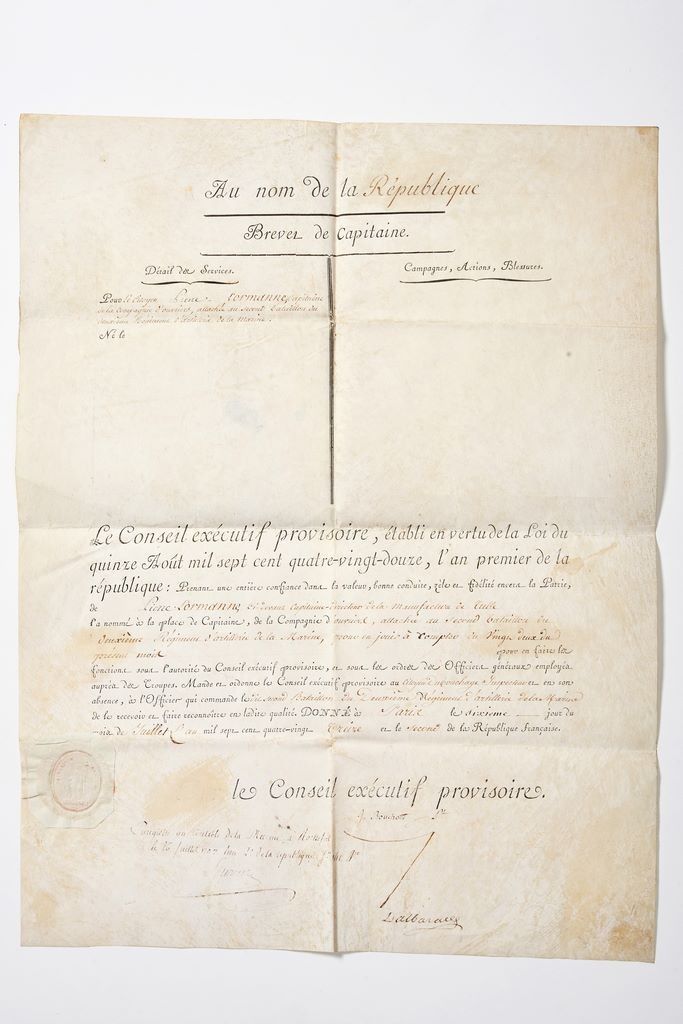 Au nom de la République
Brevet de Capitaine.
Détail des Services.
Campagnes, Actions, Blessures.
Pour le citoyen Pierre Lormanne, Capitaine
de la Compagnie d'ouvriers, attachée au second Bataillon du
deuxième Régiment d'Artillerie de la Marine.
Né le
Le Conseil exécutif provisoire, établi en vertu de la Loi du
quinze Août mil sept cent quatre-vingt-douze, l'an premier de la
république: Prenant une entière confiance dans la valeur, bonne conduite, zèle et fidélité envers la Patrie,
de Pierre Lormanne Capitaine de la manufacture de
l'a nommé à la place de Capitaine, de la Compagnie d'ouvriers, attachée au Second Bataillon du
deuxième Régiment d'artillerie de la Marine, pour en jouir à compter du vingt deux du
présent mois pour en faire les
fonctions sous l'autorité du Conseil exécutif provisoire, et sous les ordres des Officiers généraux employés
auprès des Troupes. Mande et ordonne le Conseil exécutif provisoire au citoyen Inspecteur et en son
absence, à l'Officier qui commande le second Bataillon du Deuxième Régiment d'artillerie de la Marine
de le recevoir et faire reconnoître en ladite qualité. DONNÉ à Paris le sixième jour du
mois de Juillet l'an mil sept cent quatre-vingt Treize et le Second de la République Française.
le Conseil exécutif provisoire.
J. Bouchotte
de la Marine à
le 26 Juillet 1793 l'an 2e de la république
Dalbarade